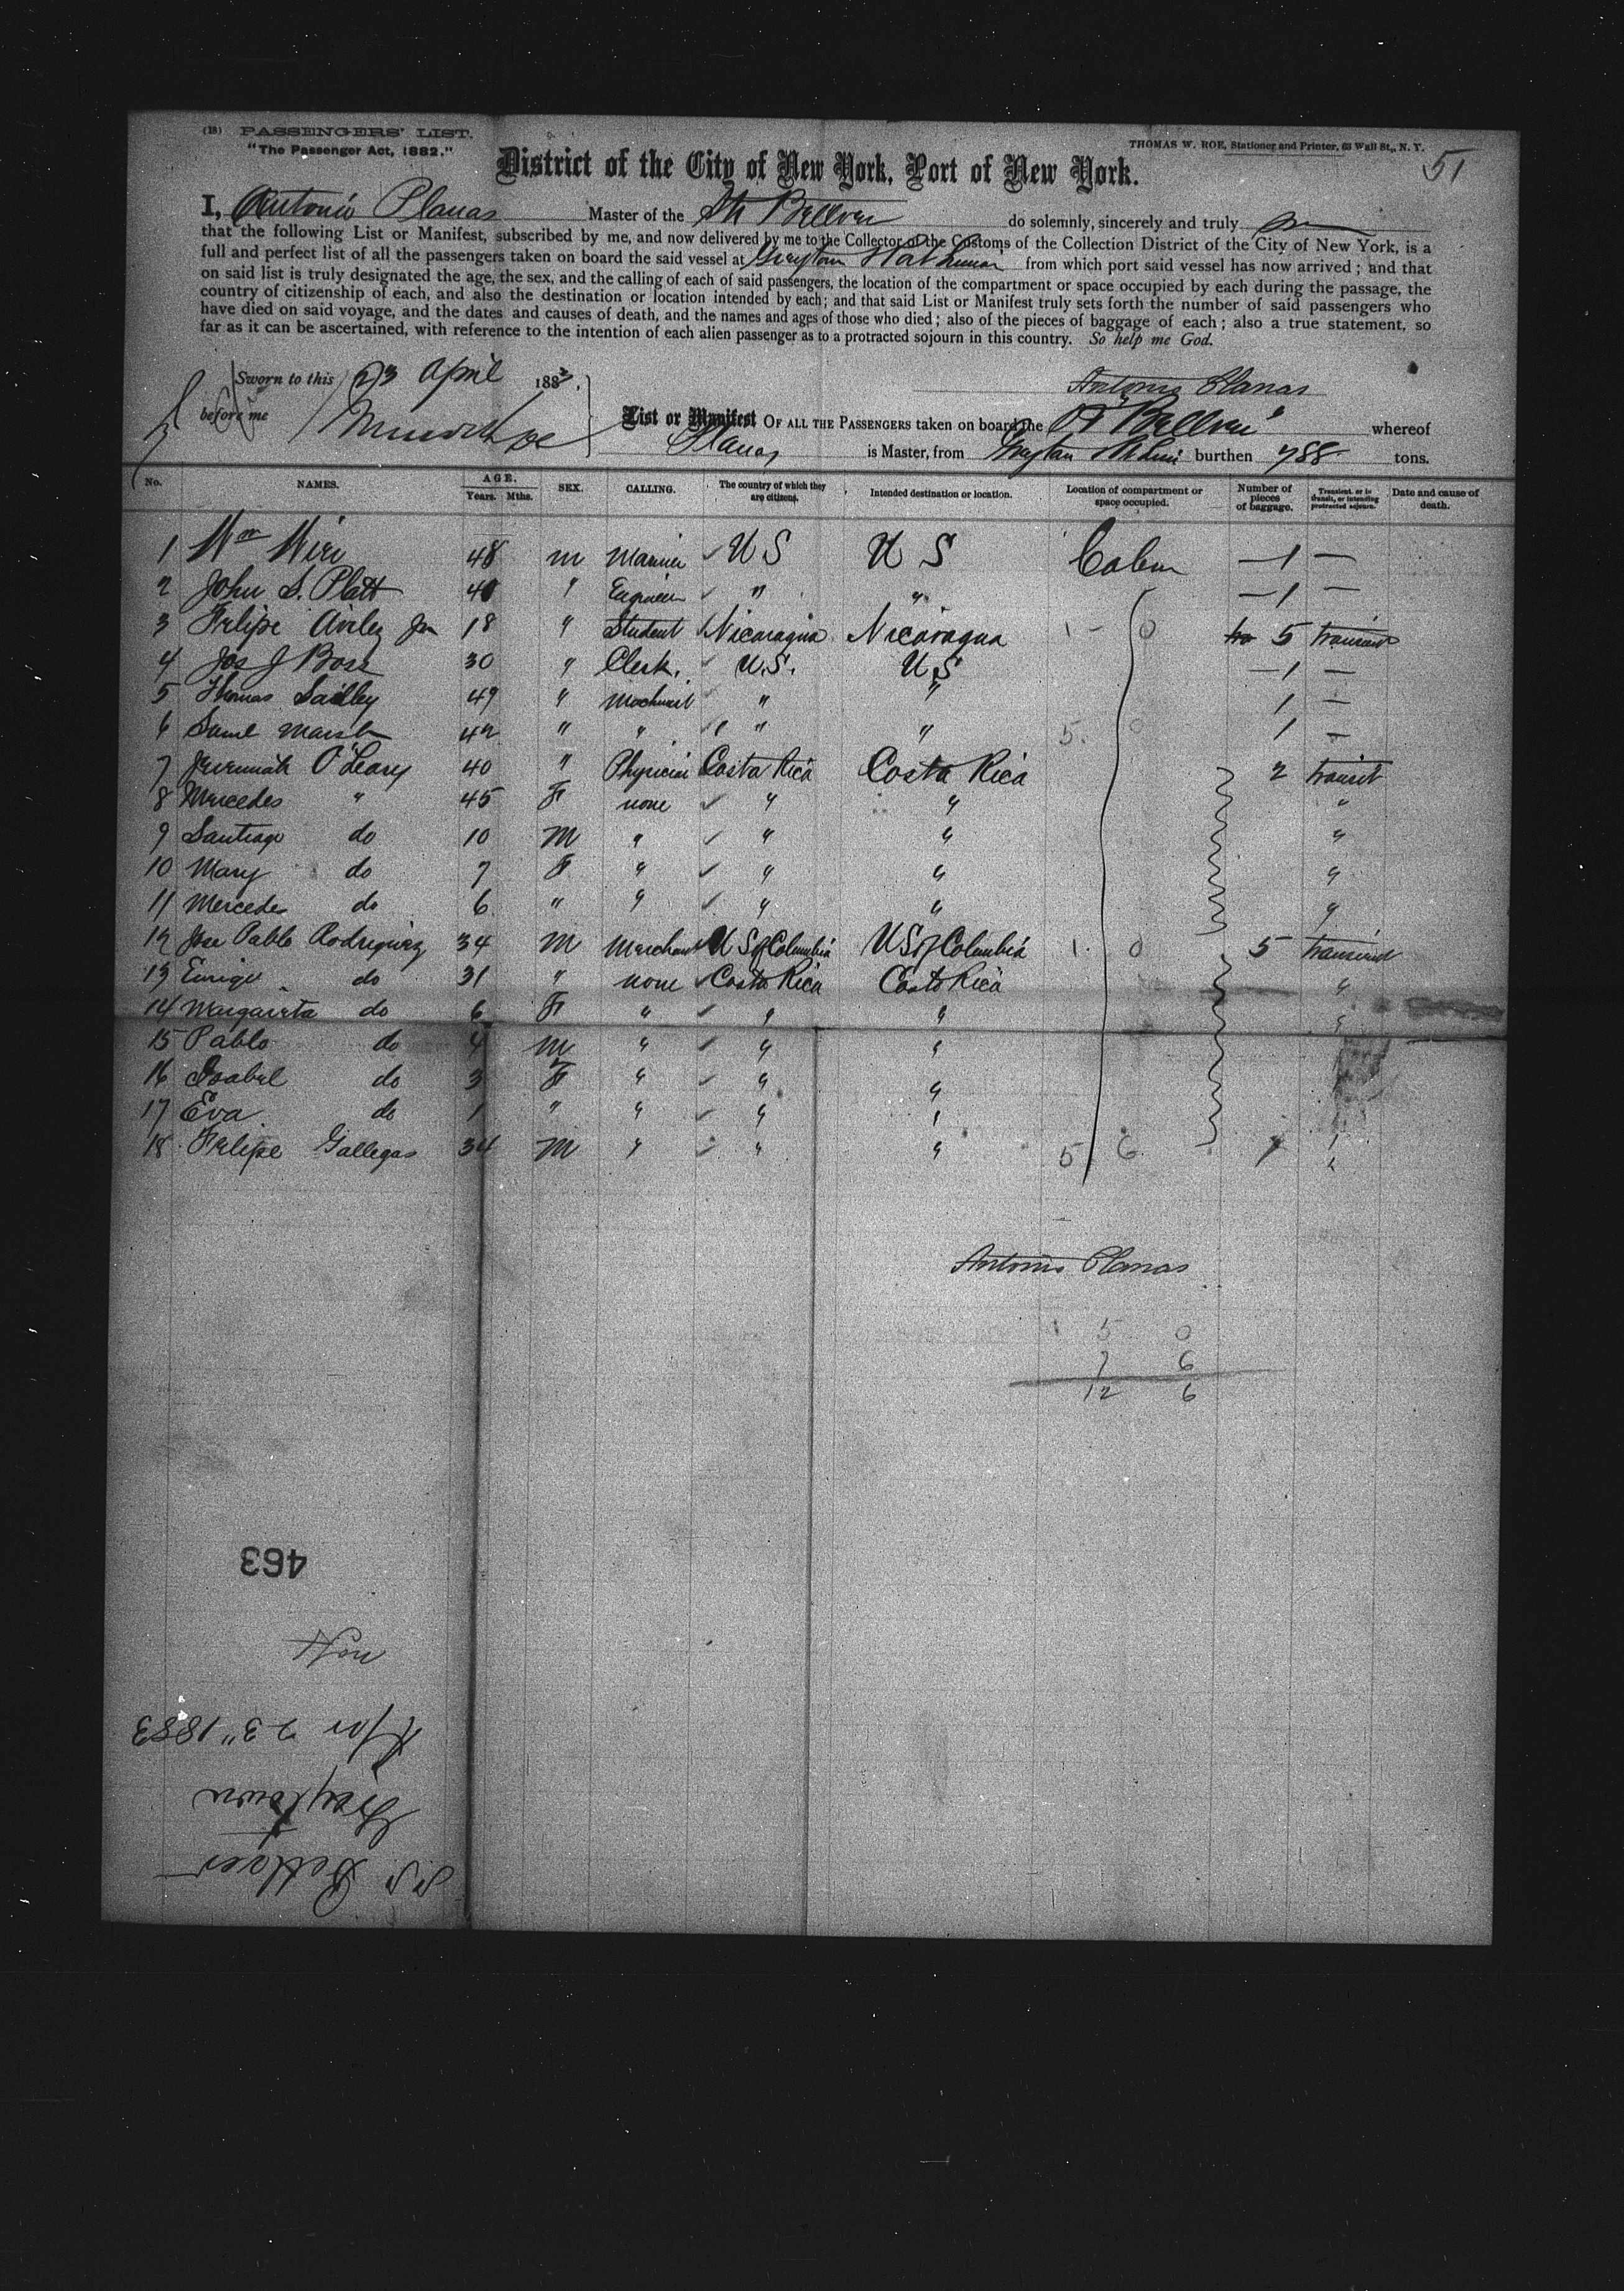 (18) PASSENGERS' LIST.
"The Passenger Act, 1882."
THOMAS W. ROE, Stationer and Printer, 63 Wall St., N. Y.
51
District of the City of New York, Port of New York.
I, Antonio Planas Master of the Str Bellver do solemnly, sincerely and truly
that the following List or Manifest, subscribed by me, and now delivered by me to the Collector of the Customs of the Collection District of the City of New York, is a
full and perfect list of all the passengers taken on board the said vessel at Greytown from which port said vessel has now arrived; and that
on said list is truly designated the age, the sex, and the calling of each of said passengers, the location of the compartment or space occupied by each during the passage, the
country of citizenship of each, and also the destination or location intended by each; and that said List or Manifest truly sets forth the number of said passengers who
have died on said voyage, and the dates and causes of death, and the names and ages of those who died; also of the pieces of baggage of each; also a true statement, so
far as it can be ascertained, with reference to the intention of each alien passenger as to a protracted sojourn in this country. So help me God.
Sworn to this 23 April 1883.
before me
Antonio Planas
List or Manifest OF ALL THE PASSENGERS taken on board the Bellver whereof
Planas is Master, from burthen 788 tons.
No. NAMES. AGE. Years. Mths. SEX. CALLING. The country of which they are citizens. Intended destination or location. Location of compartment or space occupied. Number of pieces of baggage. Transient, or in transit, or intending protracted sojourn. Date and cause of death.
1 Wm 48 m Mariner U S U S Cabin — 1 —
2 John S. Platt 40 " Engineer " " — 1 —
3 Felipe Aviles Jr 18 " Student Nicaragua Nicaragua 1 - 0 5 transient
4 Jos J 30 " Clerk. U.S. U S — 1 —
5 Thomas 49 " Machinist " " 1 —
6 Saml Marsh 42 " " " " 5. 0 1 —
7 Jeremiah O'Leary 40 " Physician Costa Rica Costa Rica 2 transit
8 Mercedes " 45 F none " " "
9 Santiago do 10 M " " " "
10 Mary do 7 F " " " "
11 Mercedes do 6 " " " " "
12 Jose Pablo Rodriguez 34 M Merchant U S of Columbia U S of Columbia 1. 0 5 transient
13 do 31 " none Costa Rica Costa Rica "
14 Margarita do 6 F " " " "
15 Pablo do 4 M " " "
16 Isabel do 3 F " " "
17 Eva do 1 " " " "
18 Felipe Gallegas 34 M " " " 5 6 1 "
Antonio Planas
5 0
7 6
12 6
463
Apr 23" 1883
Greytown
S S Bellver